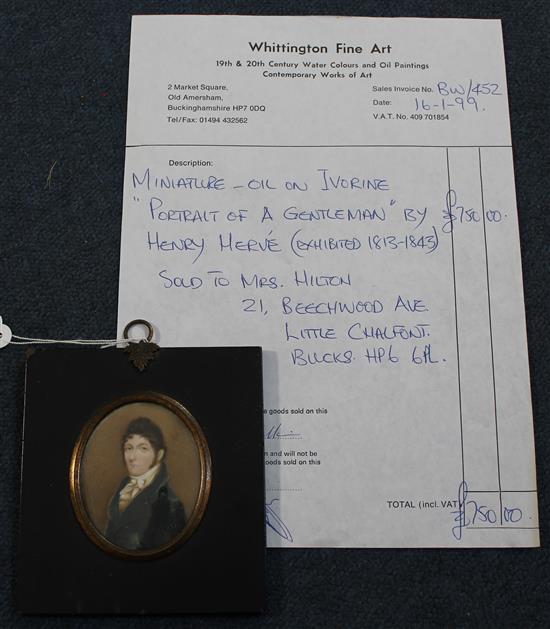 Whittington Fine Art
19th & 20th Century Water Colours and Oil Paintings
Contemporary Works of Art
2 Market Square,
Old Amersham,
Buckinghamshire HP7 0DQ
Tel/Fax: 01494 432562
Sales Invoice No. BW/452
Date: 16-1-99.
V.A.T. No. 409 701854
Description:
MINIATURE - OIL ON IVORINE
"PORTRAIT OF A GENTLEMAN" BY £750 00.
HENRY HERVÉ (EXHIBITED 1813-1843)
SOLD TO MRS. HILTON
21, BEECHWOOD AVE.
LITTLE CHALFONT.
BUCKS. HP6 6PL.
goods sold on this
and will not be
goods sold on this
TOTAL (incl. VAT) £750 00.